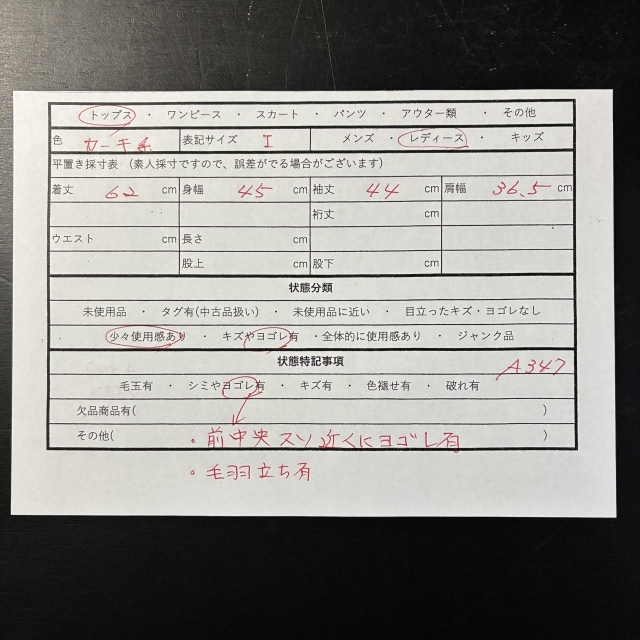 トップス ・ ワンピース ・ スカート ・ パンツ ・ アウター類 ・ その他
色 カーキ系 表記サイズ I メンズ ・ レディース ・ キッズ
平置き採寸表（素人採寸ですので、誤差がでる場合がございます）
着丈 62 cm 身幅 45 cm 袖丈 44 cm 肩幅 36.5 cm
裄丈 cm
ウエスト cm 長さ cm
股上 cm 股下 cm
状態分類
未使用品 ・ タグ有(中古品扱い) ・ 未使用品に近い ・ 目立ったキズ・ヨゴレなし
・ 少々使用感あり ・ キズやヨゴレ有 ・全体的に使用感あり ・ ジャンク品
状態特記事項
A347
毛玉有 ・ シミやヨゴレ有 ・ キズ有 ・ 色褪せ有 ・ 破れ有
欠品商品有( )
その他( ・前中央スソ近くにヨゴレ有 )
・毛羽立ち有